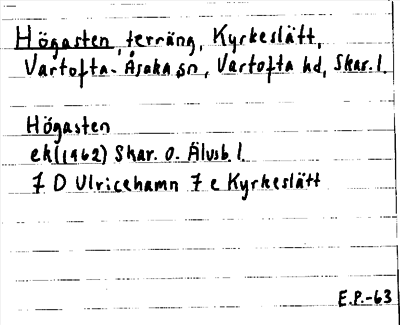 Högasten, terräng, Kyrkeslätt,
Vartofta-Åsaka sn, Vartofta hd, Skar. l.
Högasten
ek(1962) Skar. o. Älvsb. l.
7 D Ulricehamn 7 e Kyrkeslätt
E.P.-63